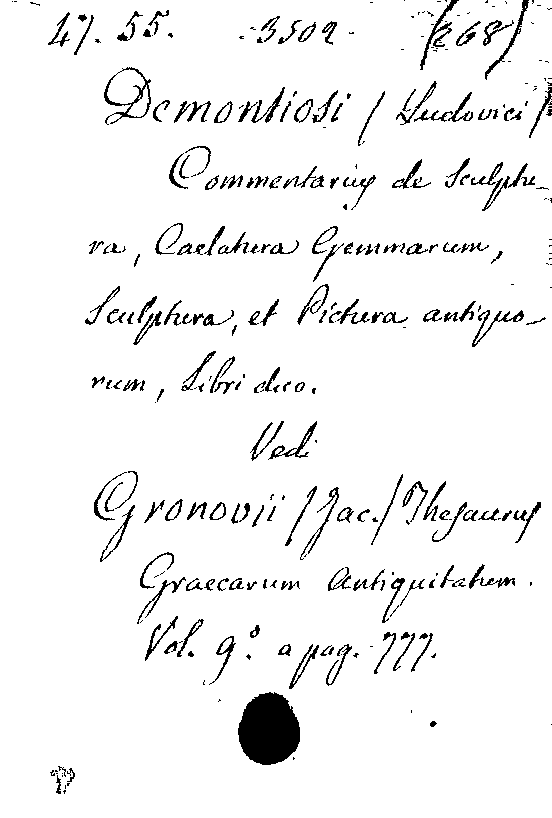 47. 55. 3502. (268)
Demontiosi / Ludovici /
Commentarius de Sculptu-
ra, Caelatura Gemmarum,
Sculptura, et Pictura antiquo-
rum, Libri duo.
Vedi
Gronovii / Jac. / Thesaurus
Graecarum Antiquitatum.
Vol. 9.° a pag. 777.